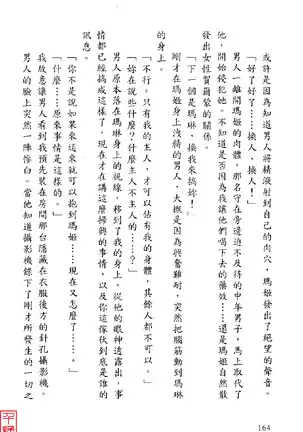 或許是因為知道男人將精液射到自己的肉穴，瑪姬發出了絕望的聲音。
「好了好了……換人、換人！」
男人一離開瑪姬的肉體，那名守在旁邊迫不及待的中年男子，馬上取代了
他，開始侵犯她。不知道是否因為我讓他們喝下去的藥效……還是瑪姬自然散
發出女性賀爾蒙的關係。
「下一個是瑪琳，換我來搞妳！」
剛才在瑪姬身上洩精的男人，大概是因為興奮難耐，突然把腦筋動到瑪琳
的身上。
「不行。只有我的主人，才可以佔有我的身體，其餘人都不可以。」
「妳在說些什麼？什麼主人不主人的……？」
男人原本落在瑪琳身上的視線，移到了我的身上。從他的眼神透露出，事
情都已經搞成這樣了，現在才在講這麼掃興的事情，以及你這傢伙到底是誰的
訊息。
「你不是說如果來這來就可以抱到瑪姬……現在又怎麼了……。」
「什麼……原來事情是這樣的。」
我故意讓男人看到我預先裝在房間那台隱藏在衣服後方的針孔攝影機。
男人的臉上突然一陣慘白。當他知道攝影機錄下了剛才所發生的一切之
164